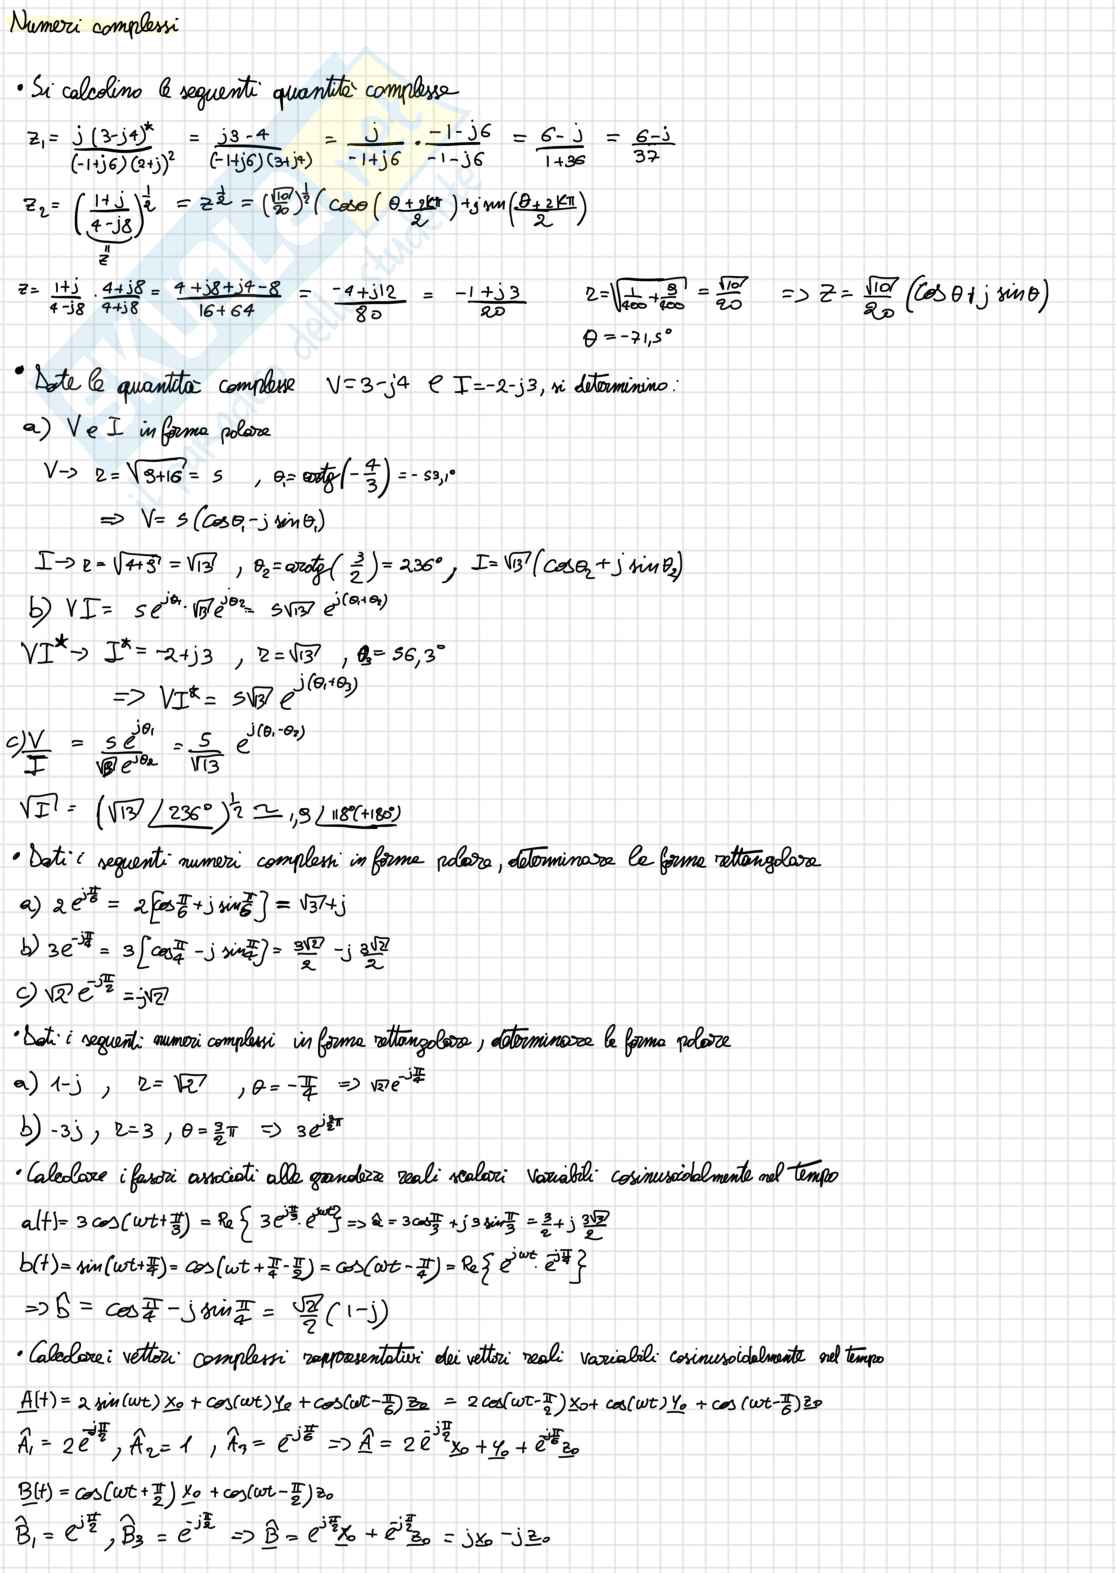 Numeri complessi
• Si calcolino le seguenti quantità complesse
z₁ = j(3-j4)*/((-1+j6)(2+j)²) = (j3-4)/((-1+j6)(3+j4)) = j/(-1+j6) · (-1-j6)/(-1-j6) = (6-j)/(1+36) = (6-j)/37
z₂ = ((1+j)/(4-j8))^(1/2) = z^(1/2) = (√10/20)^(1/2) (cosθ((θ+2kπ)/2)+j sin((θ+2kπ)/2)
z
z = (1+j)/(4-j8) · (4+j8)/(4+j8) = (4+j8+j4-8)/(16+64) = (-4+j12)/80 = (-1+j3)/20 r=√(1/400+9/400) = √10/20 => z = √10/20 (cosθ+j sinθ)
θ = -71,5°
• Date le quantità complesse V=3-j4 e I=-2-j3, si determinino:
a) V e I in forma polare
V-> r=√(9+16) = 5 , θ₁=arctg(-4/3) = -53,1°
=> V= 5(cosθ₁-j sinθ₁)
I-> r=√(4+9) = √13 , θ₂=arctg(3/2) = 236°, I=√13(cosθ₂+j sinθ₂)
b) VI= 5e^(jθ₁)·√13e^(jθ₂) = 5√13 e^(j(θ₁+θ₂))
VI*-> I*=-2+j3 , r=√13 , θ₃=56,3°
=> VI*= 5√13 e^(j(θ₁+θ₃))
c) V/I = 5e^(jθ₁)/(√13 e^(jθ₂)) = 5/√13 e^(j(θ₁-θ₂))
√I = (√13 /236°)^(1/2) ≃ 1,9 /118°(+180°)
• Dati i seguenti numeri complessi in forma polare, determinare le forme rettangolare
a) 2e^(jπ/6) = 2[cosπ/6+j sinπ/6] = √3+j
b) 3e^(-jπ/4) = 3[cosπ/4 - j sinπ/4] = 3√2/2 - j 3√2/2
c) √2 e^(-jπ/2) = j√2
• Dati i seguenti numeri complessi in forma rettangolare, determinare le forma polare
a) 1-j , r=√2 , θ=-π/4 => √2e^(-jπ/4)
b) -3j , r=3 , θ=3/2π => 3e^(j3/2π)
• Calcolare i fasori associati alle grandezze reali scalari variabili cosinusoidalmente nel tempo
a(t)= 3cos(ωt+π/3) = Re{3e^(jπ/3)·e^(jωt)} => â = 3cosπ/3 +j3 sinπ/3 = 3/2 + j 3√2/2
b(t)= sin(ωt+π/4) = cos(ωt+π/4-π/2) = cos(ωt-π/4) = Re{e^(jωt)·e^(-jπ/4)}
=> b̂ = cosπ/4 - j sinπ/4 = √2/2 (1-j)
• Calcolare i vettori complessi rappresentativi dei vettori reali variabili cosinusoidalmente nel tempo
A(t) = 2sin(ωt)x₀ + cos(ωt)y₀ + cos(ωt-π/6)z₀ = 2cos(ωt-π/2)x₀+ cos(ωt)y₀ + cos(ωt-π/6)z₀
Â₁ = 2e^(-jπ/2) , Â₂=1 , Â₃ = e^(-jπ/6) => Â = 2e^(-jπ/2)x₀+y₀+e^(-jπ/6)z₀
B(t) = cos(ωt+π/2)x₀ +cos(ωt-π/2)z₀
B̂₁ = e^(jπ/2) , B̂₃ = e^(-jπ/2) => B̂ = e^(jπ/2)x₀ + e^(-jπ/2)z₀ = jx₀ -jz₀